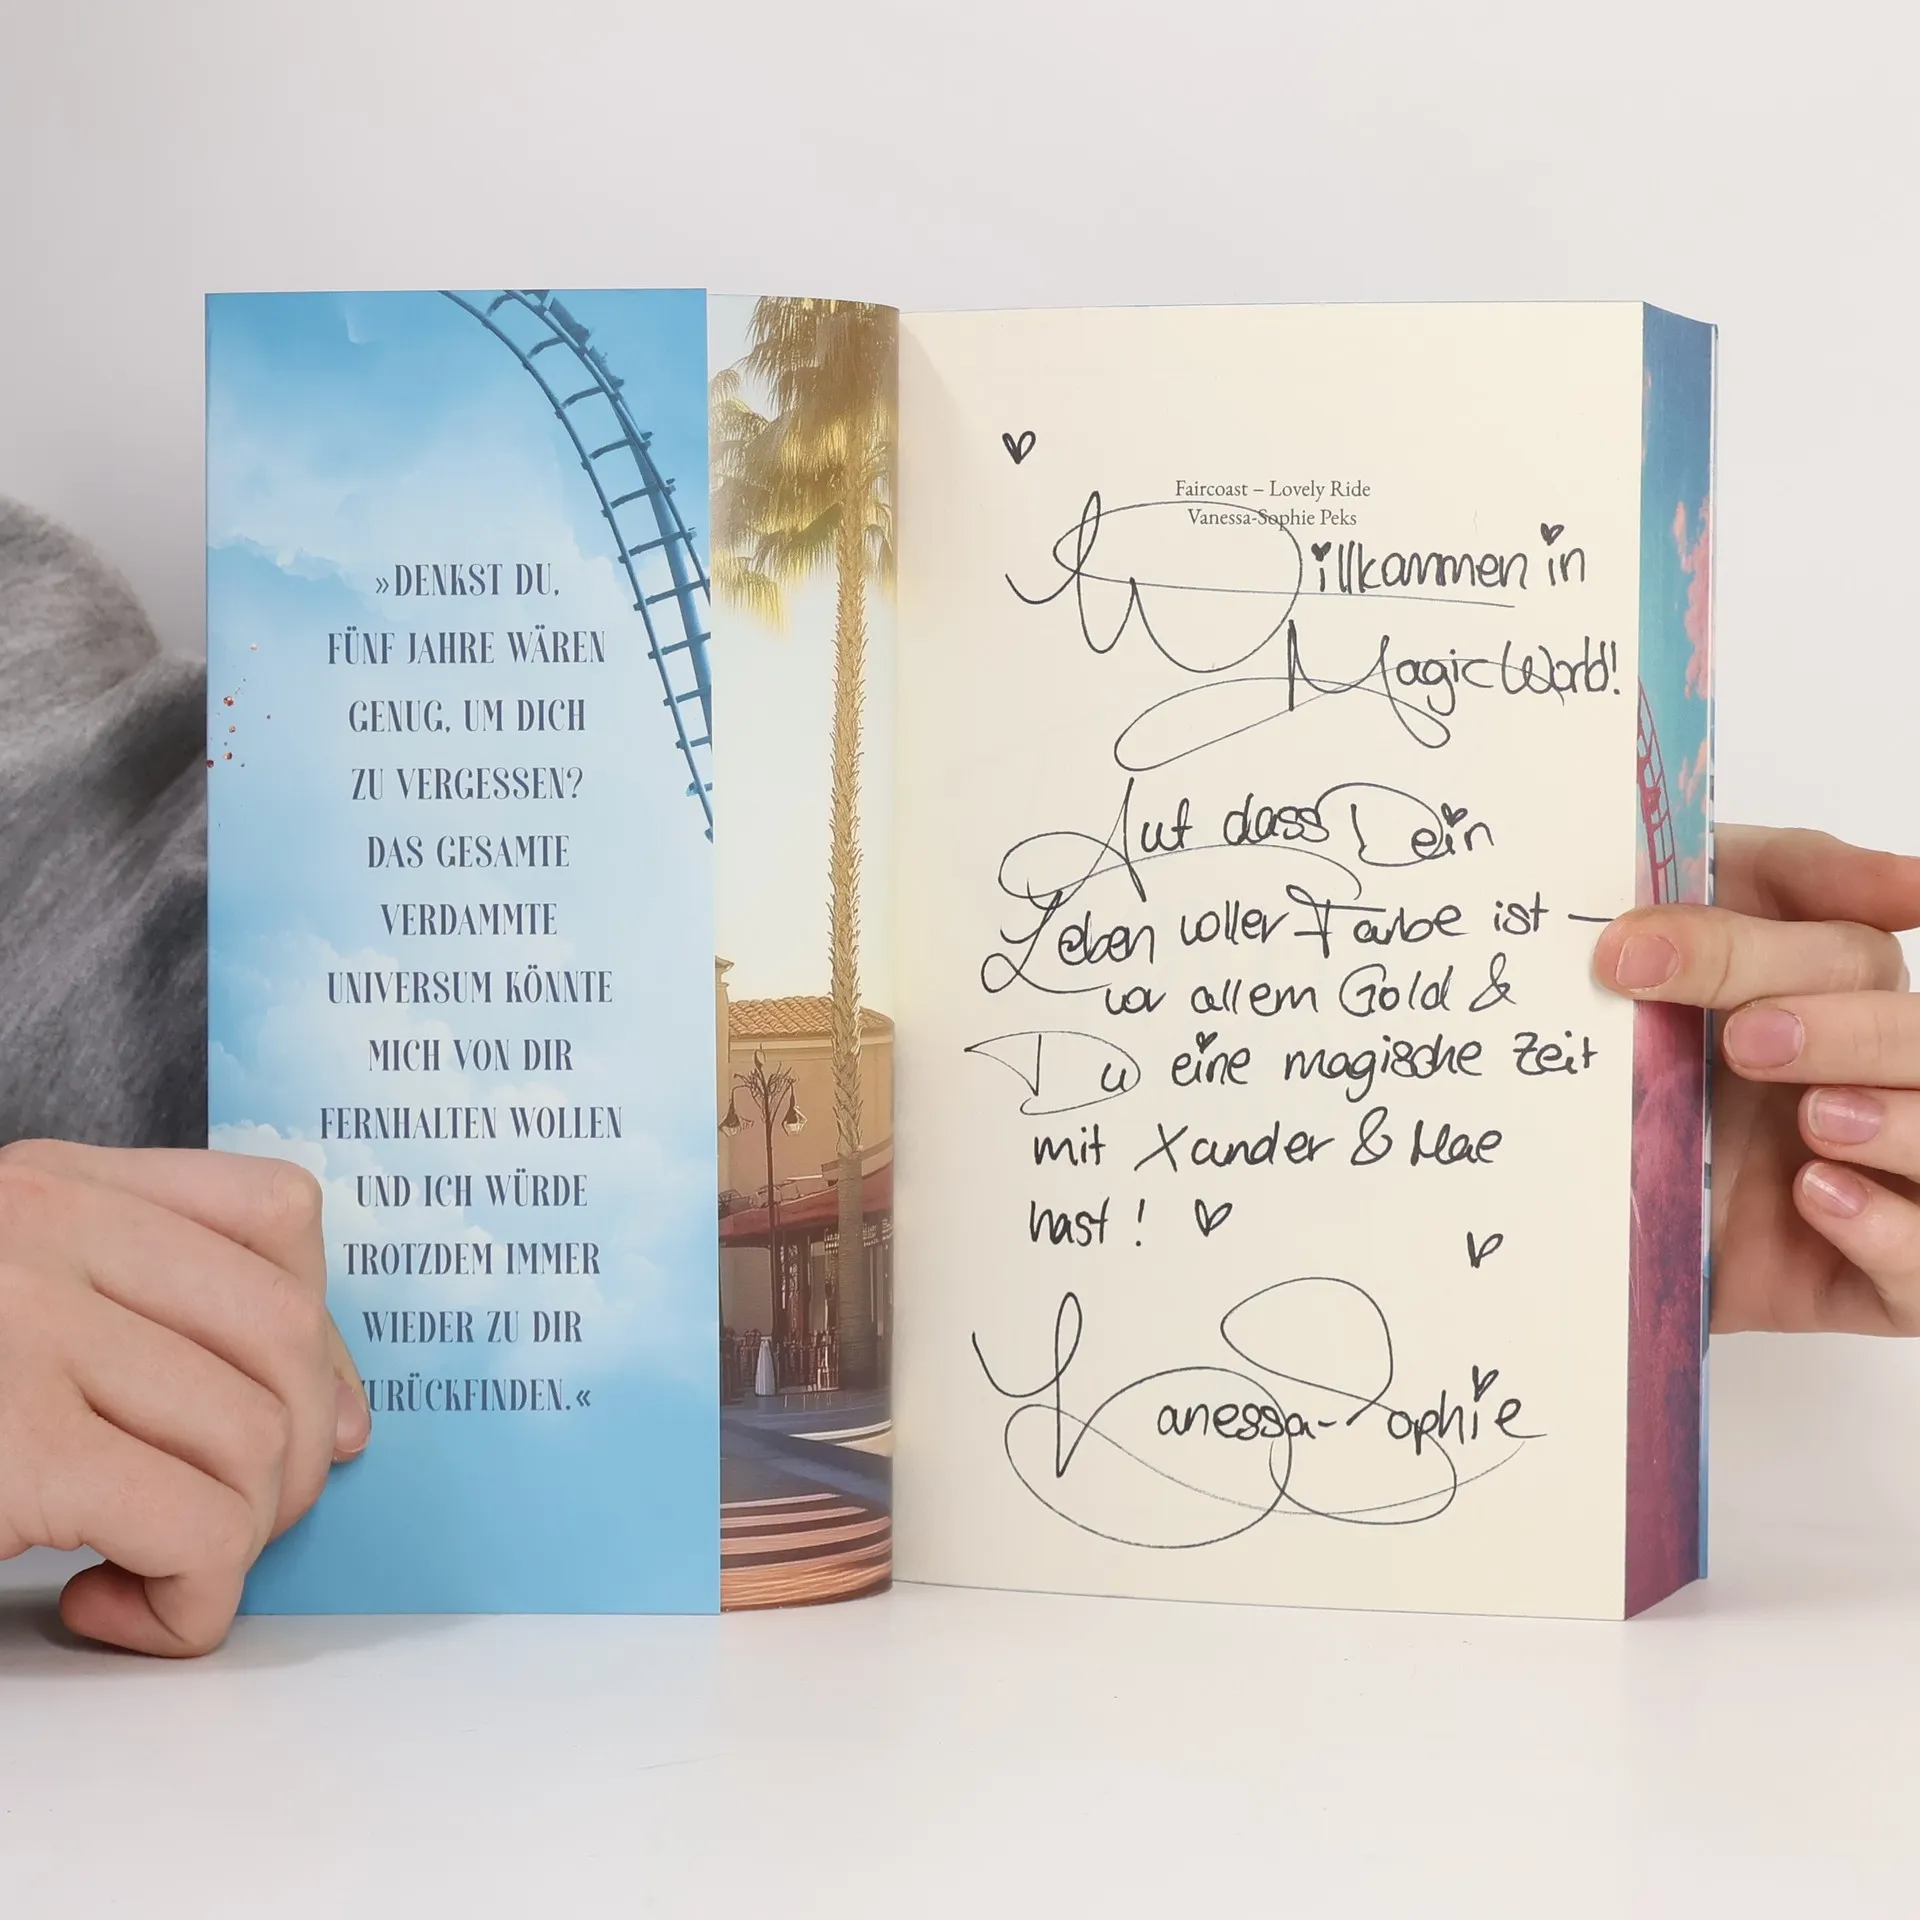 »DENKST DU,
FÜNF JAHRE WÄREN
GENUG, UM DICH
ZU VERGESSEN?
DAS GESAMTE
VERDAMMTE
UNIVERSUM KÖNNTE
MICH VON DIR
FERNHALTEN WOLLEN
UND ICH WÜRDE
TROTZDEM IMMER
WIEDER ZU DIR
URÜCKFINDEN.«
Faircoast – Lovely Ride
Vanessa-Sophie Peks
Willkommen in
Magic World!
Auf dass Dein
Leben voller Farbe ist –
vor allem Gold &
Du eine magische Zeit
mit Xander & Mae
hast!
Vanessa-Sophie